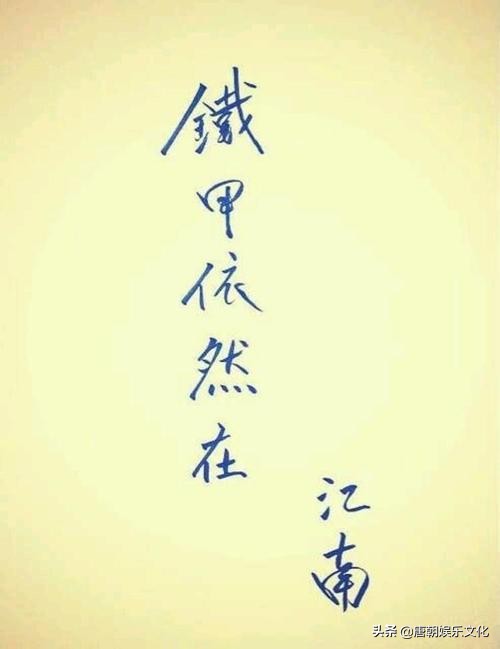 鐵甲依然在
江南
头条 @唐朝娱乐文化